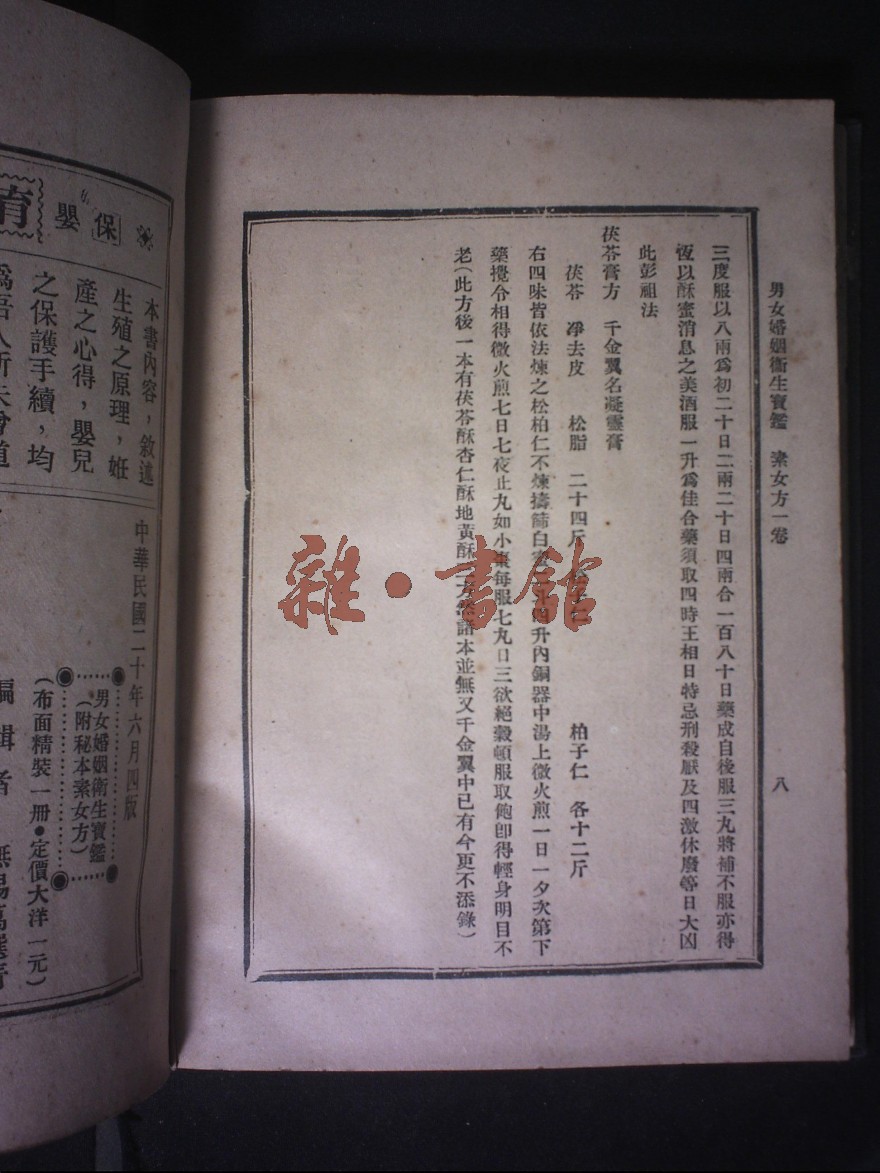 男女婚姻衛生寶鑑　素女方一卷
八
三度服以八兩為初二十日二兩二十日四兩合一百八十日藥成自後服三丸將補不服亦得
恆以酥蜜消息之美酒服一升為佳合藥須取四時王相日特忌刑殺厭及四激休廢等日大凶
此彭祖法
茯苓膏方　千金翼名凝靈膏
茯苓　淨去皮　松脂　二十四斤　松子仁　柏子仁　各十二斤
右四味皆依法煉之松柏仁不煉擣篩白蜜二斗四升內銅器中湯上微火煎一日一夕次第下
藥攪令相得微火煎七日七夜止丸如小棗每服七丸日三欲絕穀頓服取飽卽得輕身明目不
老(此方後一本有茯苓酥杏仁酥地黃酥三方然諸本並無又千金翼中已有今更不添錄)
雜·書館
保嬰
育
本書內容，敘述
生殖之原理，姙
產之心得，嬰兒
之保護手續，均
為吾人所未曾道
中華民國二十年六月四版
男女婚姻衛生寶鑑
(附秘本素女方)
(布面精裝一冊●定價大洋一元)
編輯者　無錫